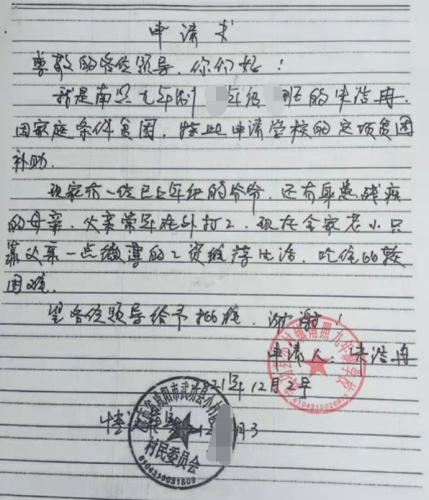 申请书
尊敬的各位领导,你们好!
我是南照九年制 年级 班的朱浩冉,
因家庭条件贫困,特此申请学校的定项贫困
补助。
现家有一位已上年纪的爷爷,还有身患残疾
的母亲,父亲常年在外打工,现在全家老小只
靠父亲一点微薄的工资维持生活,吃住比较
困难。
望各位领导给予批准,谢谢!
申请人:朱浩冉
2021年12月2号
12月3
村民委员会